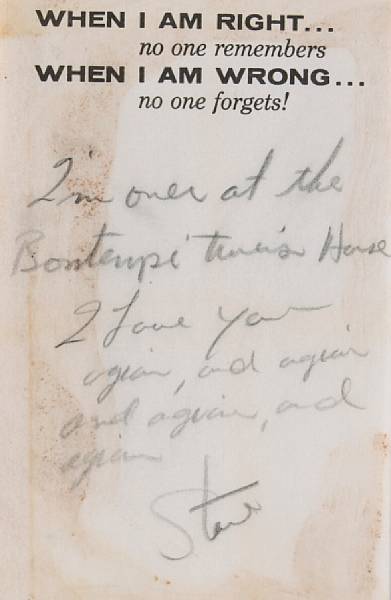 WHEN I AM RIGHT...
no one remembers
WHEN I AM WRONG...
no one forgets!
I'm over at the
House
I Love you
again, and again
and again, and
again